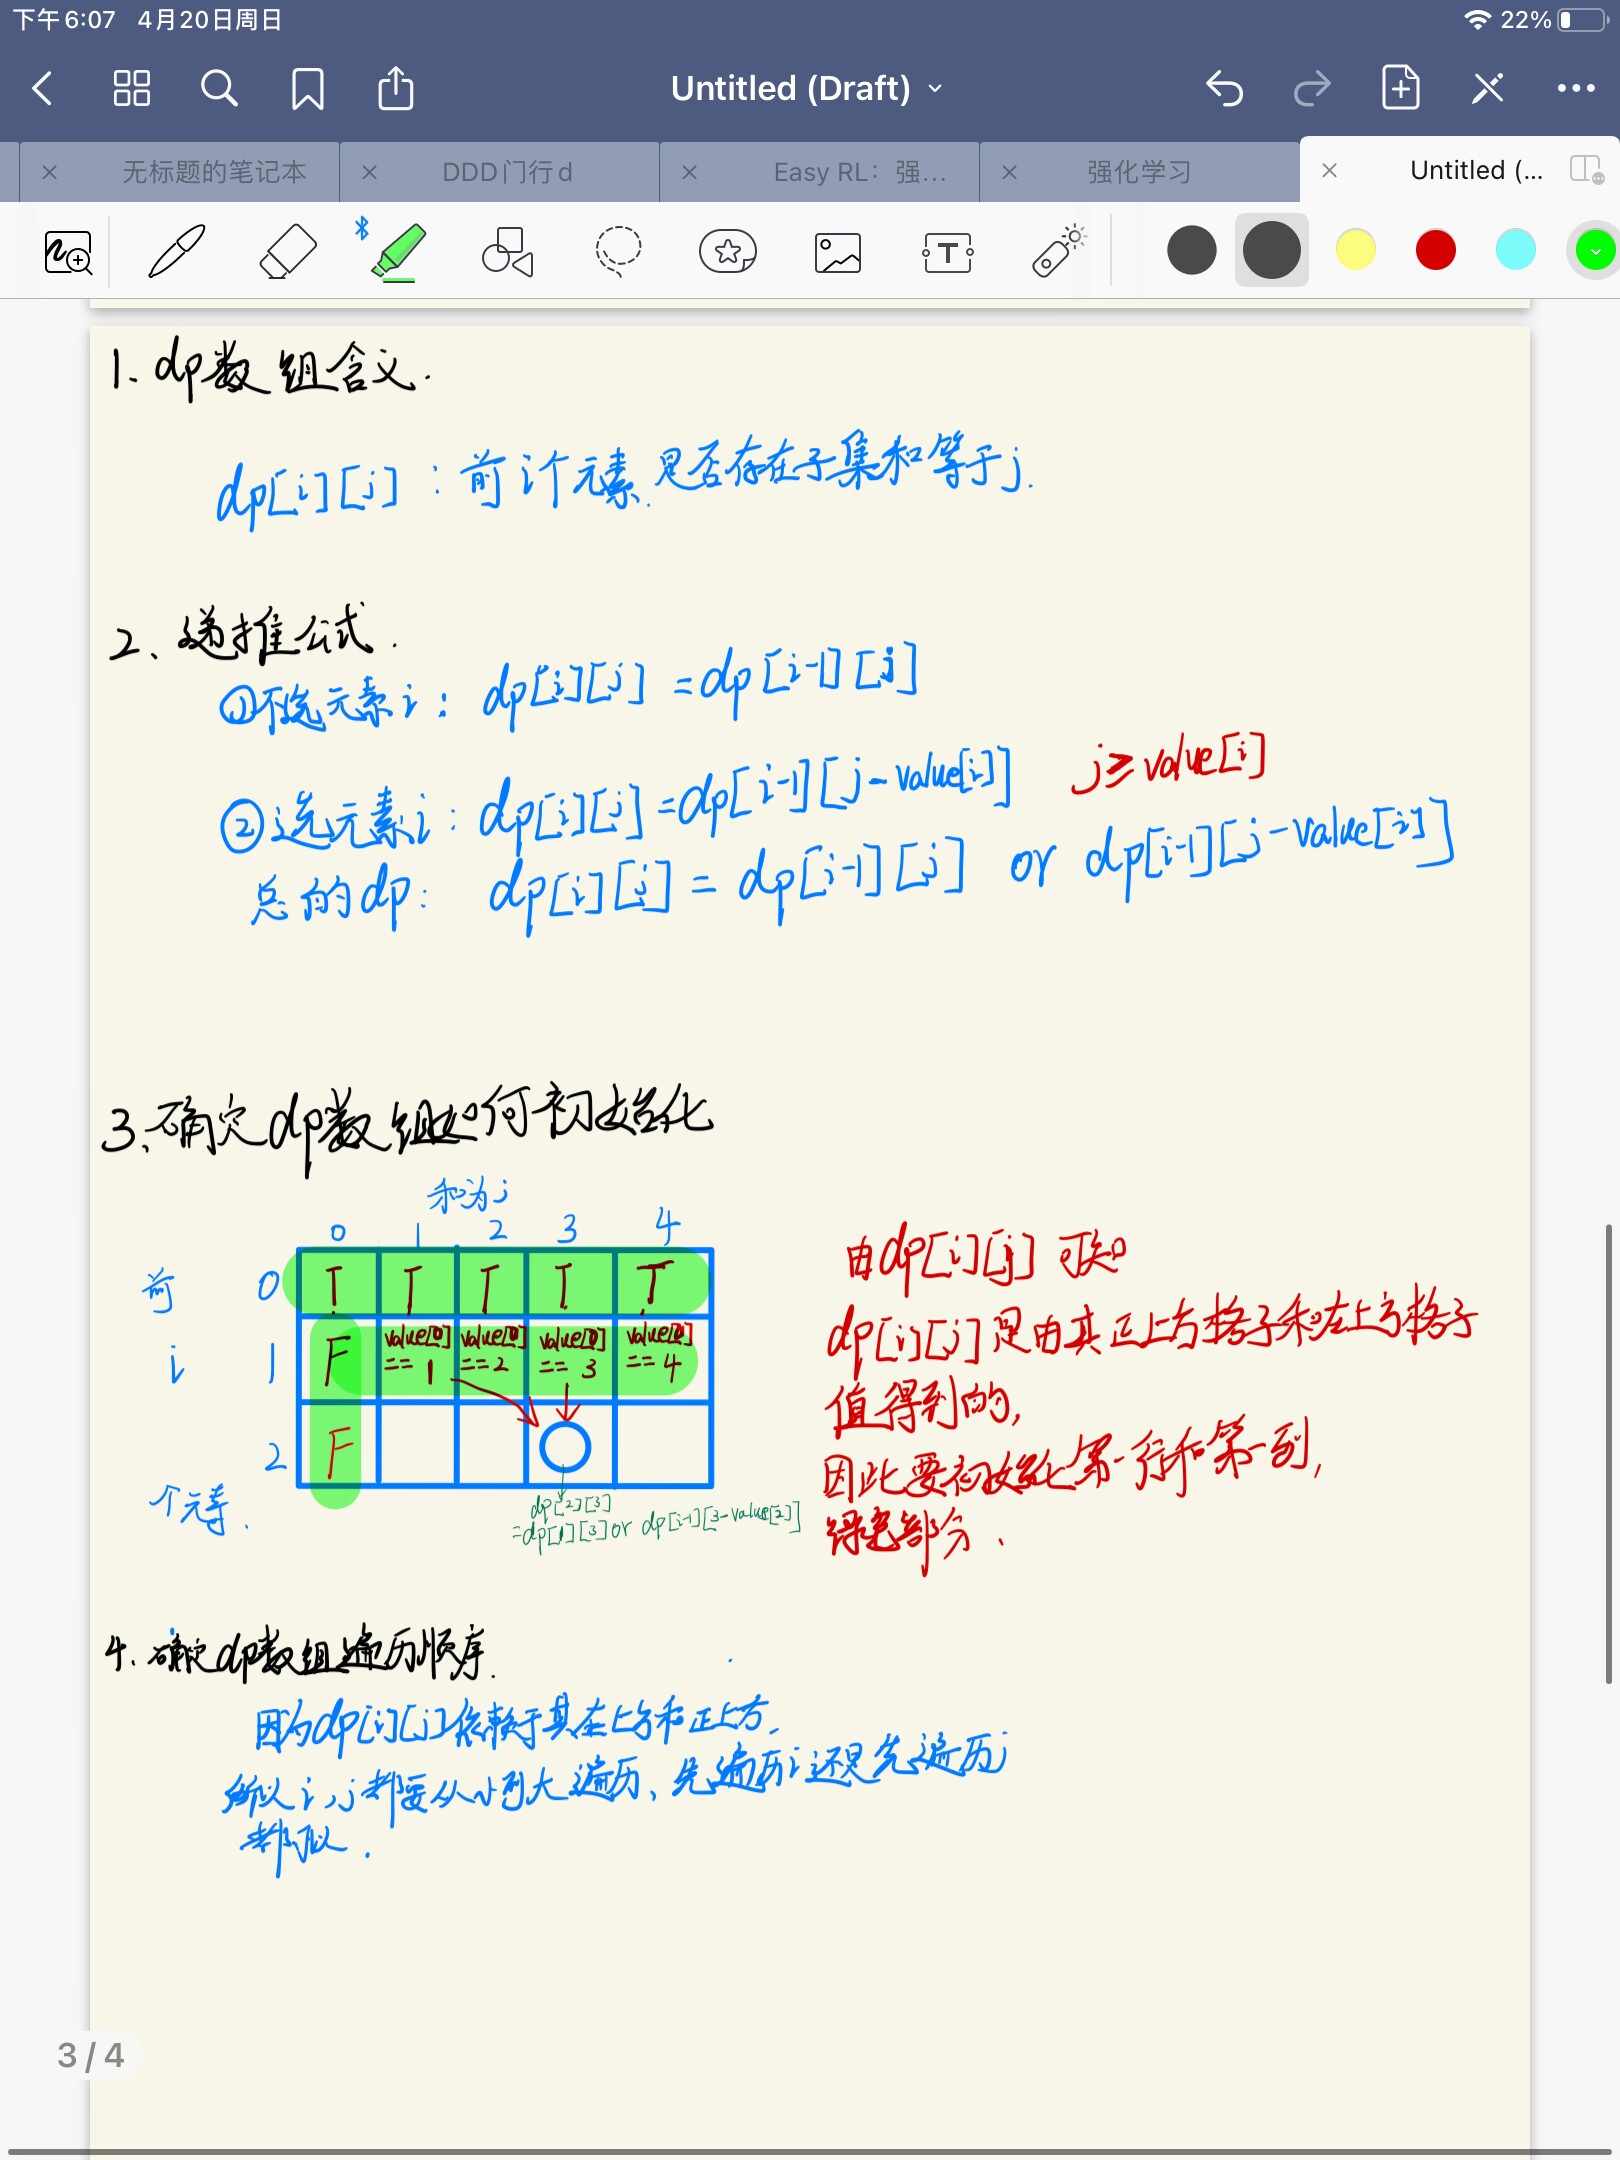 下午6:07 4月20日周日 22%
Untitled (Draft)
无标题的笔记本 DDD门行d Easy RL：强... 强化学习 Untitled (...
1. dp数组含义.
dp[i][j]：前i个元素.是否存在子集和等于j.
2、递推公式.
①不选元素i：dp[i][j]=dp[i-1][j]
②选元素i：dp[i][j]=dp[i-1][j-value[i]] j≥value[i]
总的dp：dp[i][j]=dp[i-1][j] or dp[i-1][j-value[i]]
3、确定dp数组如何初始化
和为j
0 1 2 3 4
前 0 T T T T T
i 1 F value[0]==1 value[0]==2 value[0]==3 value[0]==4
2 F
个元素.
dp[2][3]
=dp[1][3] or dp[i-1][3-value[2]]
由dp[i][j]可知
dp[i][j]是由其正上方格子和左上方格子
值得到的,
因此要初始化第一行和第一列,
绿色部分、
4、确定dp数组遍历顺序.
因为dp[i][j]依赖于其左上方和正上方.
所以i,j都要从小到大遍历、先遍历i还是先遍历j
都可以.
3 / 4